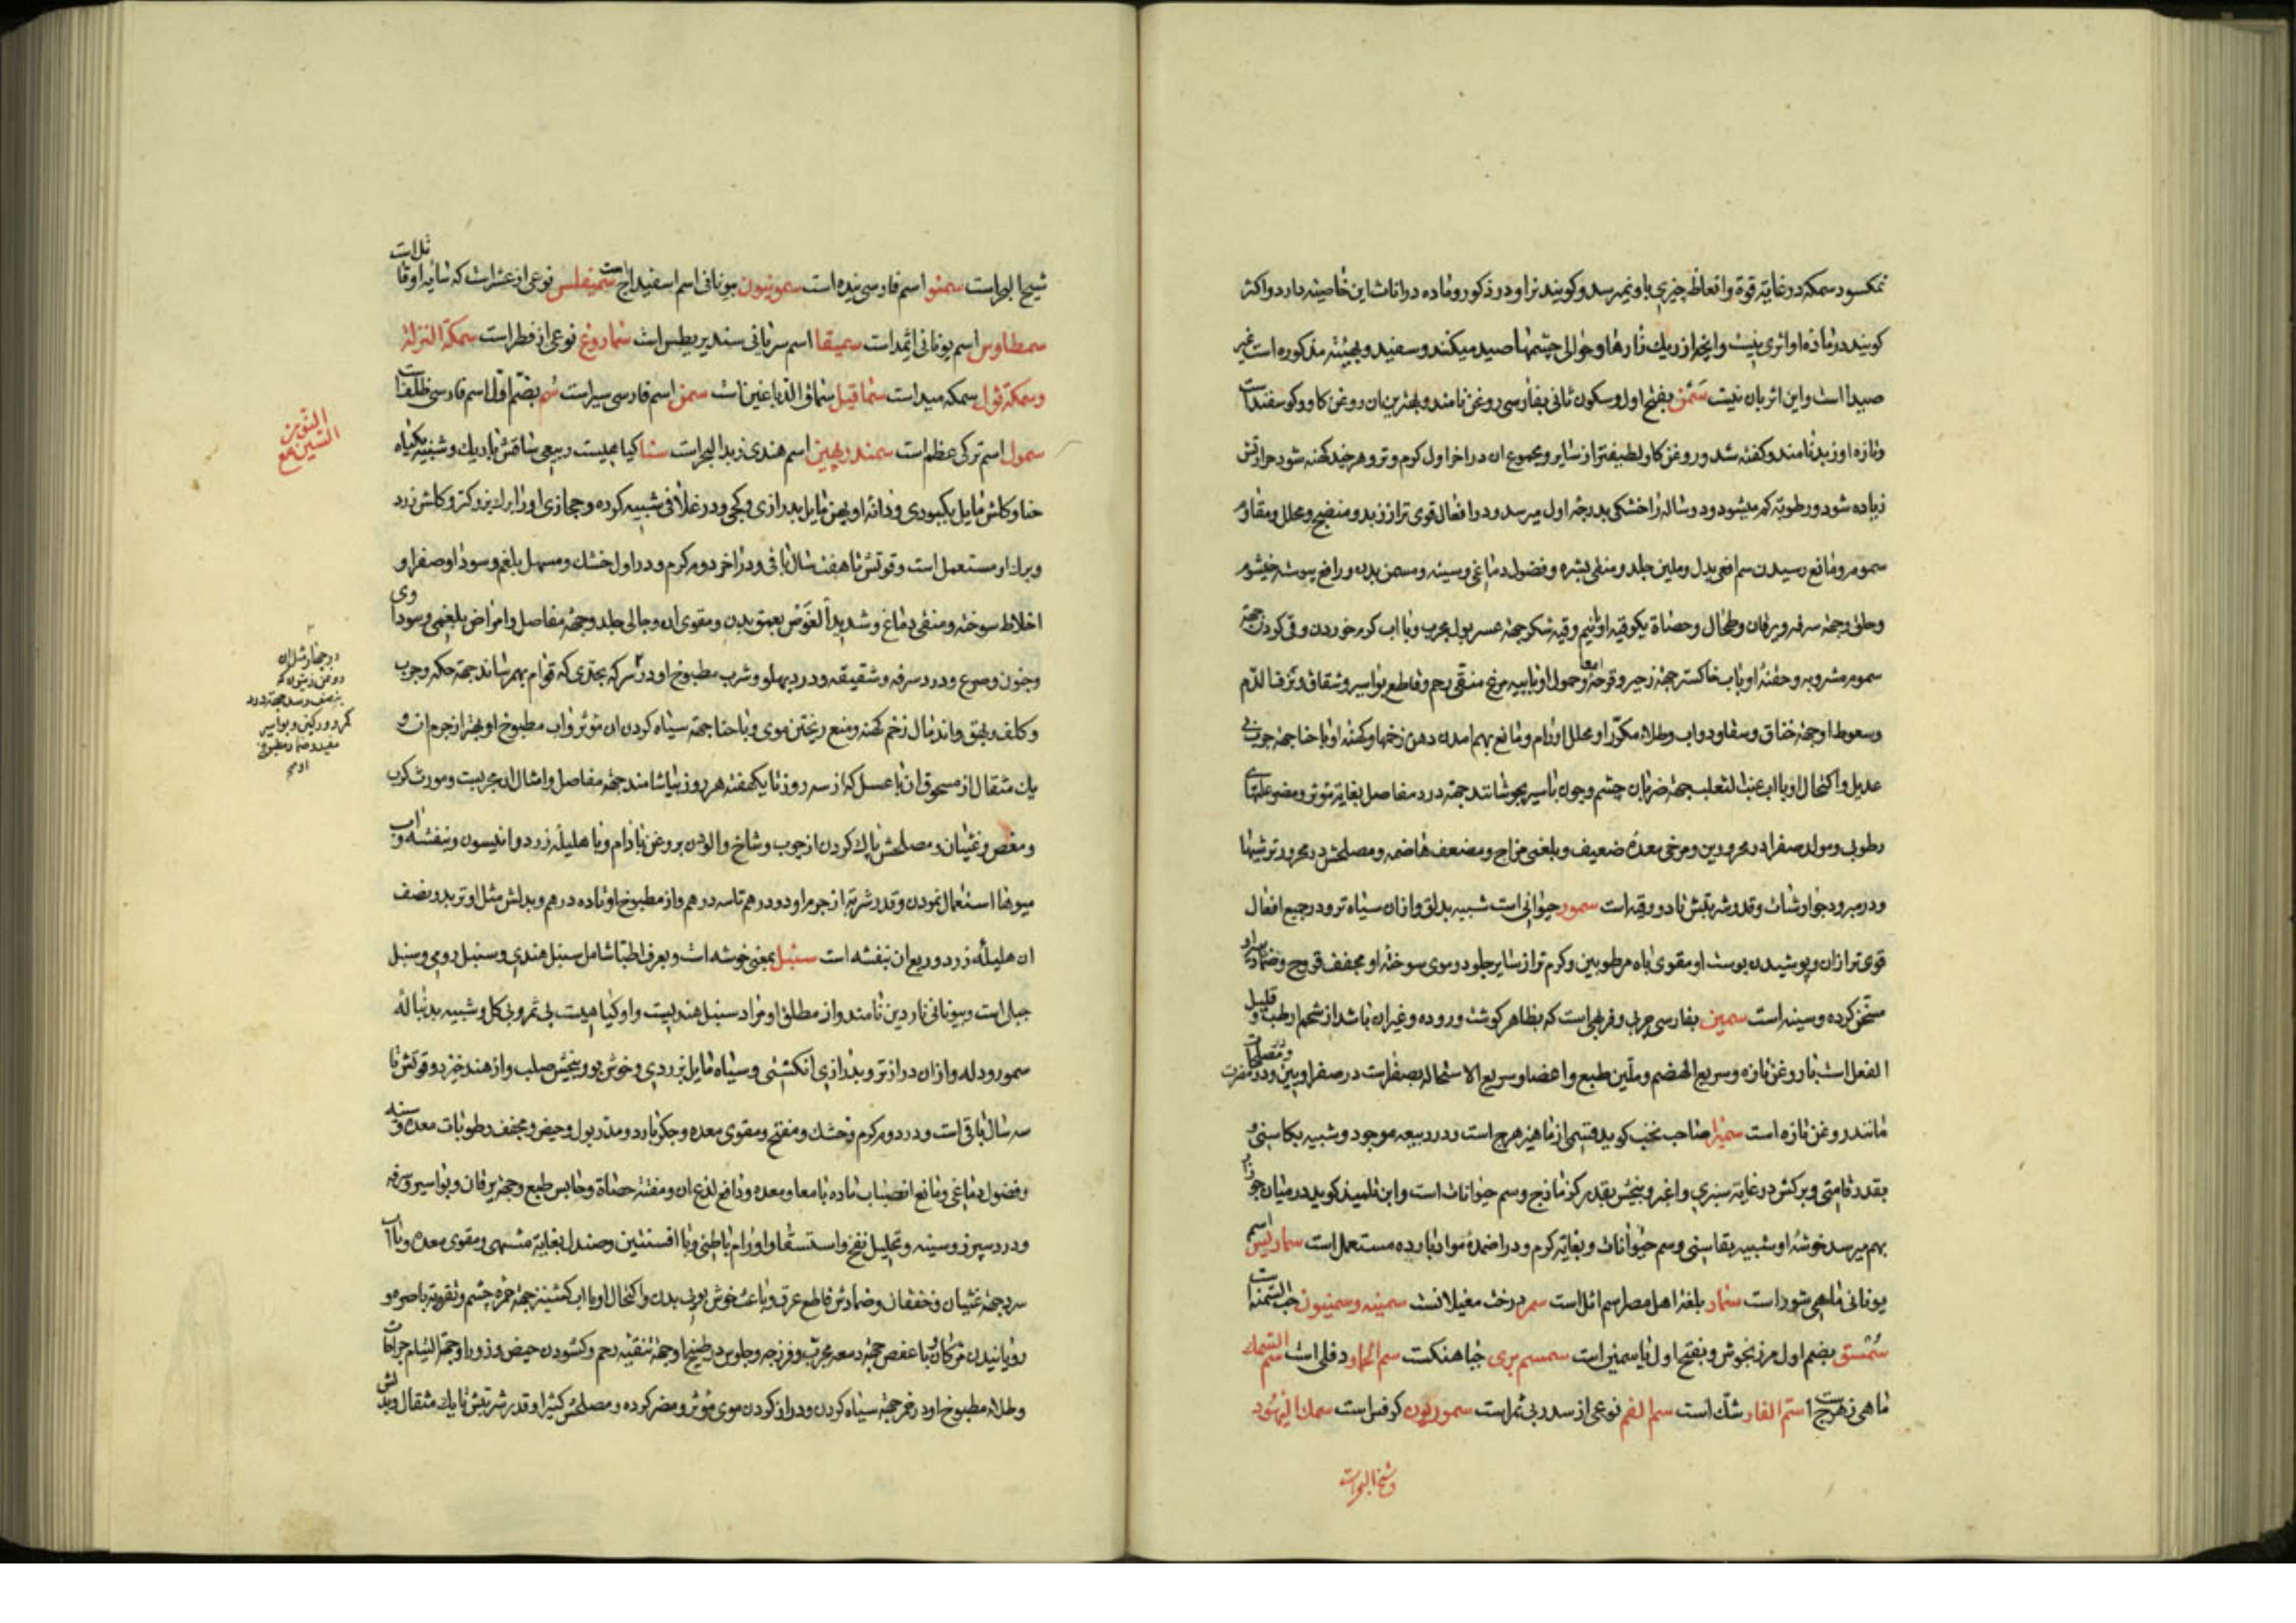 نمکسود سمکه در غایة قوة وانعاظ چیزی باو نمیرسد وکویند نر او در ذکور وماده در اناث این خاصیة دارد واکثر
کویند در ماده او اثری نیست وانچه از ریك زارها وحوالی چشمها صید میکنند وسفید وبهیئة مذکوره است غیر
صیدا است واین اثر بان نیست سمن بفتح اول وسکون ثانی بفارسی روغن نامند وبهترین ان روغن کاو وکوسفند است
وتازه او زبد نامند وکفته شد وروغن کاو لطیفتر از سایر ومجموع ان در اخر اول کرم وتر وهر چند کهنه شود حرارتش
زیاده شود ورطوبة کم میشود ودو ساله را خشکی بدرجه اول میرسد ودر افعال قوی تر از زبد ومنضج ومحلل ومقاوم
سموم ومانع رسیدن سم افعی بدل وملین جلد ومنقی بشره وفضول دماغی وسینه ومسمن بدن ورافع یبوسة خیشوم
وحلق وجهة سرفه ویرقان وطحال وحصاة یکوقیه او بانیم وقیه شکر جهة عسر بول مجرب وبا اب کرم خوردن وقی کردن جهة
سموم مشروبه وحقنهٔ او باب خاکستر جهة زحیر وقرحهٔ امعا وحمول او با پیه مرغ منقی رحم وقاطع بواسیر وشقاق ونزف الدم
وسعوط او جهة خناق وسقاو دواب وطلاء مکرر او محلل اورام ومانع بهم امدن دهن زخمها وکهنه او با حنا جهة جرب بی
عدیل واکتحال او با اب عنب الثعلب جهة ضربان چشم وچون با سیر بجوشانند جهة درد مفاصل بغایة موثر ومضر علتهای
رطوبی ومولد صفرا در محرورین ومرخی معدهٔ ضعیف وبلغمی مزاج ومضعف هاضمه ومصلحش در محرور ترشیها
ودر مبرود جوارشات وقدر شربتش تا دو وقیه است سمور حیوانی است شبیه بدلق وازان سیاه تر ودر جمیع افعال
قوی تر ازان وپوشیدن پوست او مقوی باه مرطوبین وکرم تر از سایر جلود وموی سوخته او مجفف قروح وضماد
مسخن کرده وسینه است سمین بفارسی چربی وفربهی است که بظاهر کوشت وروده وغیر ان باشد از شحم ارطب وقلیل
الفعل است تا روغن تازه وسریع الهضم وملین طبع واعضا وسریع الاستحاله بصفراست در صفراویین ودر مضرت ومصلحات
مانند روغن تازه است سمیرا صاحب نخب کوید قسمی از ماهیزهرج است ودر ربیعه موجود وشبیه بکاسنی و
بقدر قامتی وبرکش در غایة سبزی واغبر وبیخش بقدر کزمازج وسم حیوانات است وابن تلمیذ کوید در میان جو
بهم میرسد خوشهٔ او شبیه بقاسنی وسم حیوانات وبغایة کرم ودر اضمدهٔ مواد بارده مستعمل است سماریس اسم
یونانی ماهی شور است سمار بلغة اهل مصر اسم اثل است سمر درخت مغیلانست سمینه وسمنیون حب السمنه است
سمسق بضم اول مرزنجوش وبفتح اول یاسمین است سمسم بری جباهنکست سم الحمار دفلی است سم السمك
ماهی زهرج است سم الفار شك است سم الفم نوعی از سدر بی ثمر است سمورنیون کرفس است سمان الیهود
وشیح البحر است
شیح البحر است سمنو اسم فارسی نیده است سمونیون یونانی اسم اسفیداج است سمیفلس نوعی از عشر است که سایه او قاتل است
سمطاوس اسم یونانی اثمد است سمیقا اسم سریانی سندبریطس است سماروغ نوعی از فطر است سمکة النزلة
وسمکة قول سمکه صید است سماقیل سماق الدباغین است سمن اسم فارسی سیر است سم بضم اول اسم فارسی ظلف است
سمول اسم ترکی عظم است سمندر بهین اسم هندی زبد البحر است سنا کیاهیست ربیعی ساقش باریك وشبیه بکیاه
حنا وکلش مایل بکبودی ودانه او پهن مایل بدرازی وکجی ودر غلافی شبیه کرده وحجازی او را برك بزرکتر وکلش زرد
وبرك او مستعمل است وقوتش تا هفت سال باقی ودر اخر دوم کرم ودر اول خشك ومسهل بلغم وسودا وصفرا و
اخلاط سوخته ومنقی دماغ وشدید الغوص بعمق بدن ومقوی ان وجالی جلد وجهة مفاصل وامراض بلغمی وسوداوی
وجنون وصرع ودرد سرفه وشقیقه ودرد پهلو وشرب مطبوخ او در سرکه بحدی که قوام بهم رساند جهة حکه وجرب
وکلف وبهق واندمال زخم کهنه ومنع ریختن موی وبا حنا جهة سیاه کردن ان موثر واب مطبوخ او بهتر از جرم ان و
یك مثقال از مسحوق ان با عسل که از سه روز تا یکهفته هر روز بیاشامند جهة مفاصل وامثال ان مجربست ومورث کرب
ومغص وغثیان ومصلحش پاك کردن از چوب وشاخ والودن بروغن بادام وبا هلیله زرد وانیسون وبنفشه واب
میوها استعمال نمودن وقدر شربة از جرم او دو درهم تا سه درهم واز مطبوخ او تا ده درهم وبدلش مثل او تربد ونصف
ان هلیله زرد وربع ان بنفشه است سنبل بمعنی خوشه است وبعرف اطبا شامل سنبل هندی وسنبل رومی وسنبل
جبلی است وبیونانی ناردین نامند واز مطلق او مراد سنبل هندیست واو کیاهیست بی ثمر وبی کل وشبیه بدنباله
سمور ودله وازان درازتر وبدرازی انکشتی وسیاه مایل بزردی وخوش بو وبیخش صلب واز هند خیزد وقوتش تا
سه سال باقی است ودر دوم کرم وخشك ومفتح ومقوی معده وجکر بارد ومدر بول وحیض ومجفف رطوبات معده وسینه
وفضول دماغی ومانع انصباب ماده بامعا ومعده ودافع لذع ان ومفتت حصاة وحابس طبع وجهة یرقان وبواسیر وسرفه
ودرد سپرز وسینه وتحلیل نفخ واستسقا واورام باطنی وبا افسنتین وصندل بغایة مشهی ومقوی معده وبا اب
سرد جهة غثیان وخفقان وضمادش قاطع عرق وباعث خوش بویی بدن واکتحال او با اب کشنیز جهة حمرهٔ چشم وتقویة باصره و
رویانیدن مژکان وبا عفص جهة دمعه مجرب وفرزجه وجلوس در طبیخ او جهة تنقیه رحم وکشودن حیض وذرور او جهة التیام جراحات
وطلاء مطبوخ او در خمر جهة سیاه کردن ودراز کردن موی مؤثر ومضر کرده ومصلحش کتیرا وقدر شربتش تا یك مثقال وبدلش
النون
السین مع
روغن زیتون که
بنصف رسد جهة درد
کمر ودرد کین وبواسیر
مفید وضماد مطبوخ